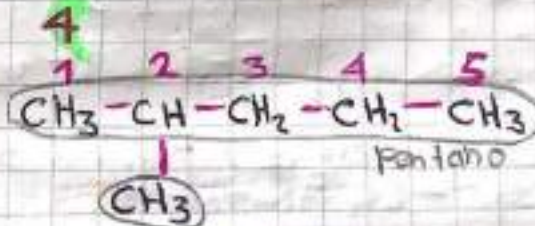 4
1 2 3 4 5
CH₃-CH-CH₂-CH₂-CH₃
Pentano
CH₃